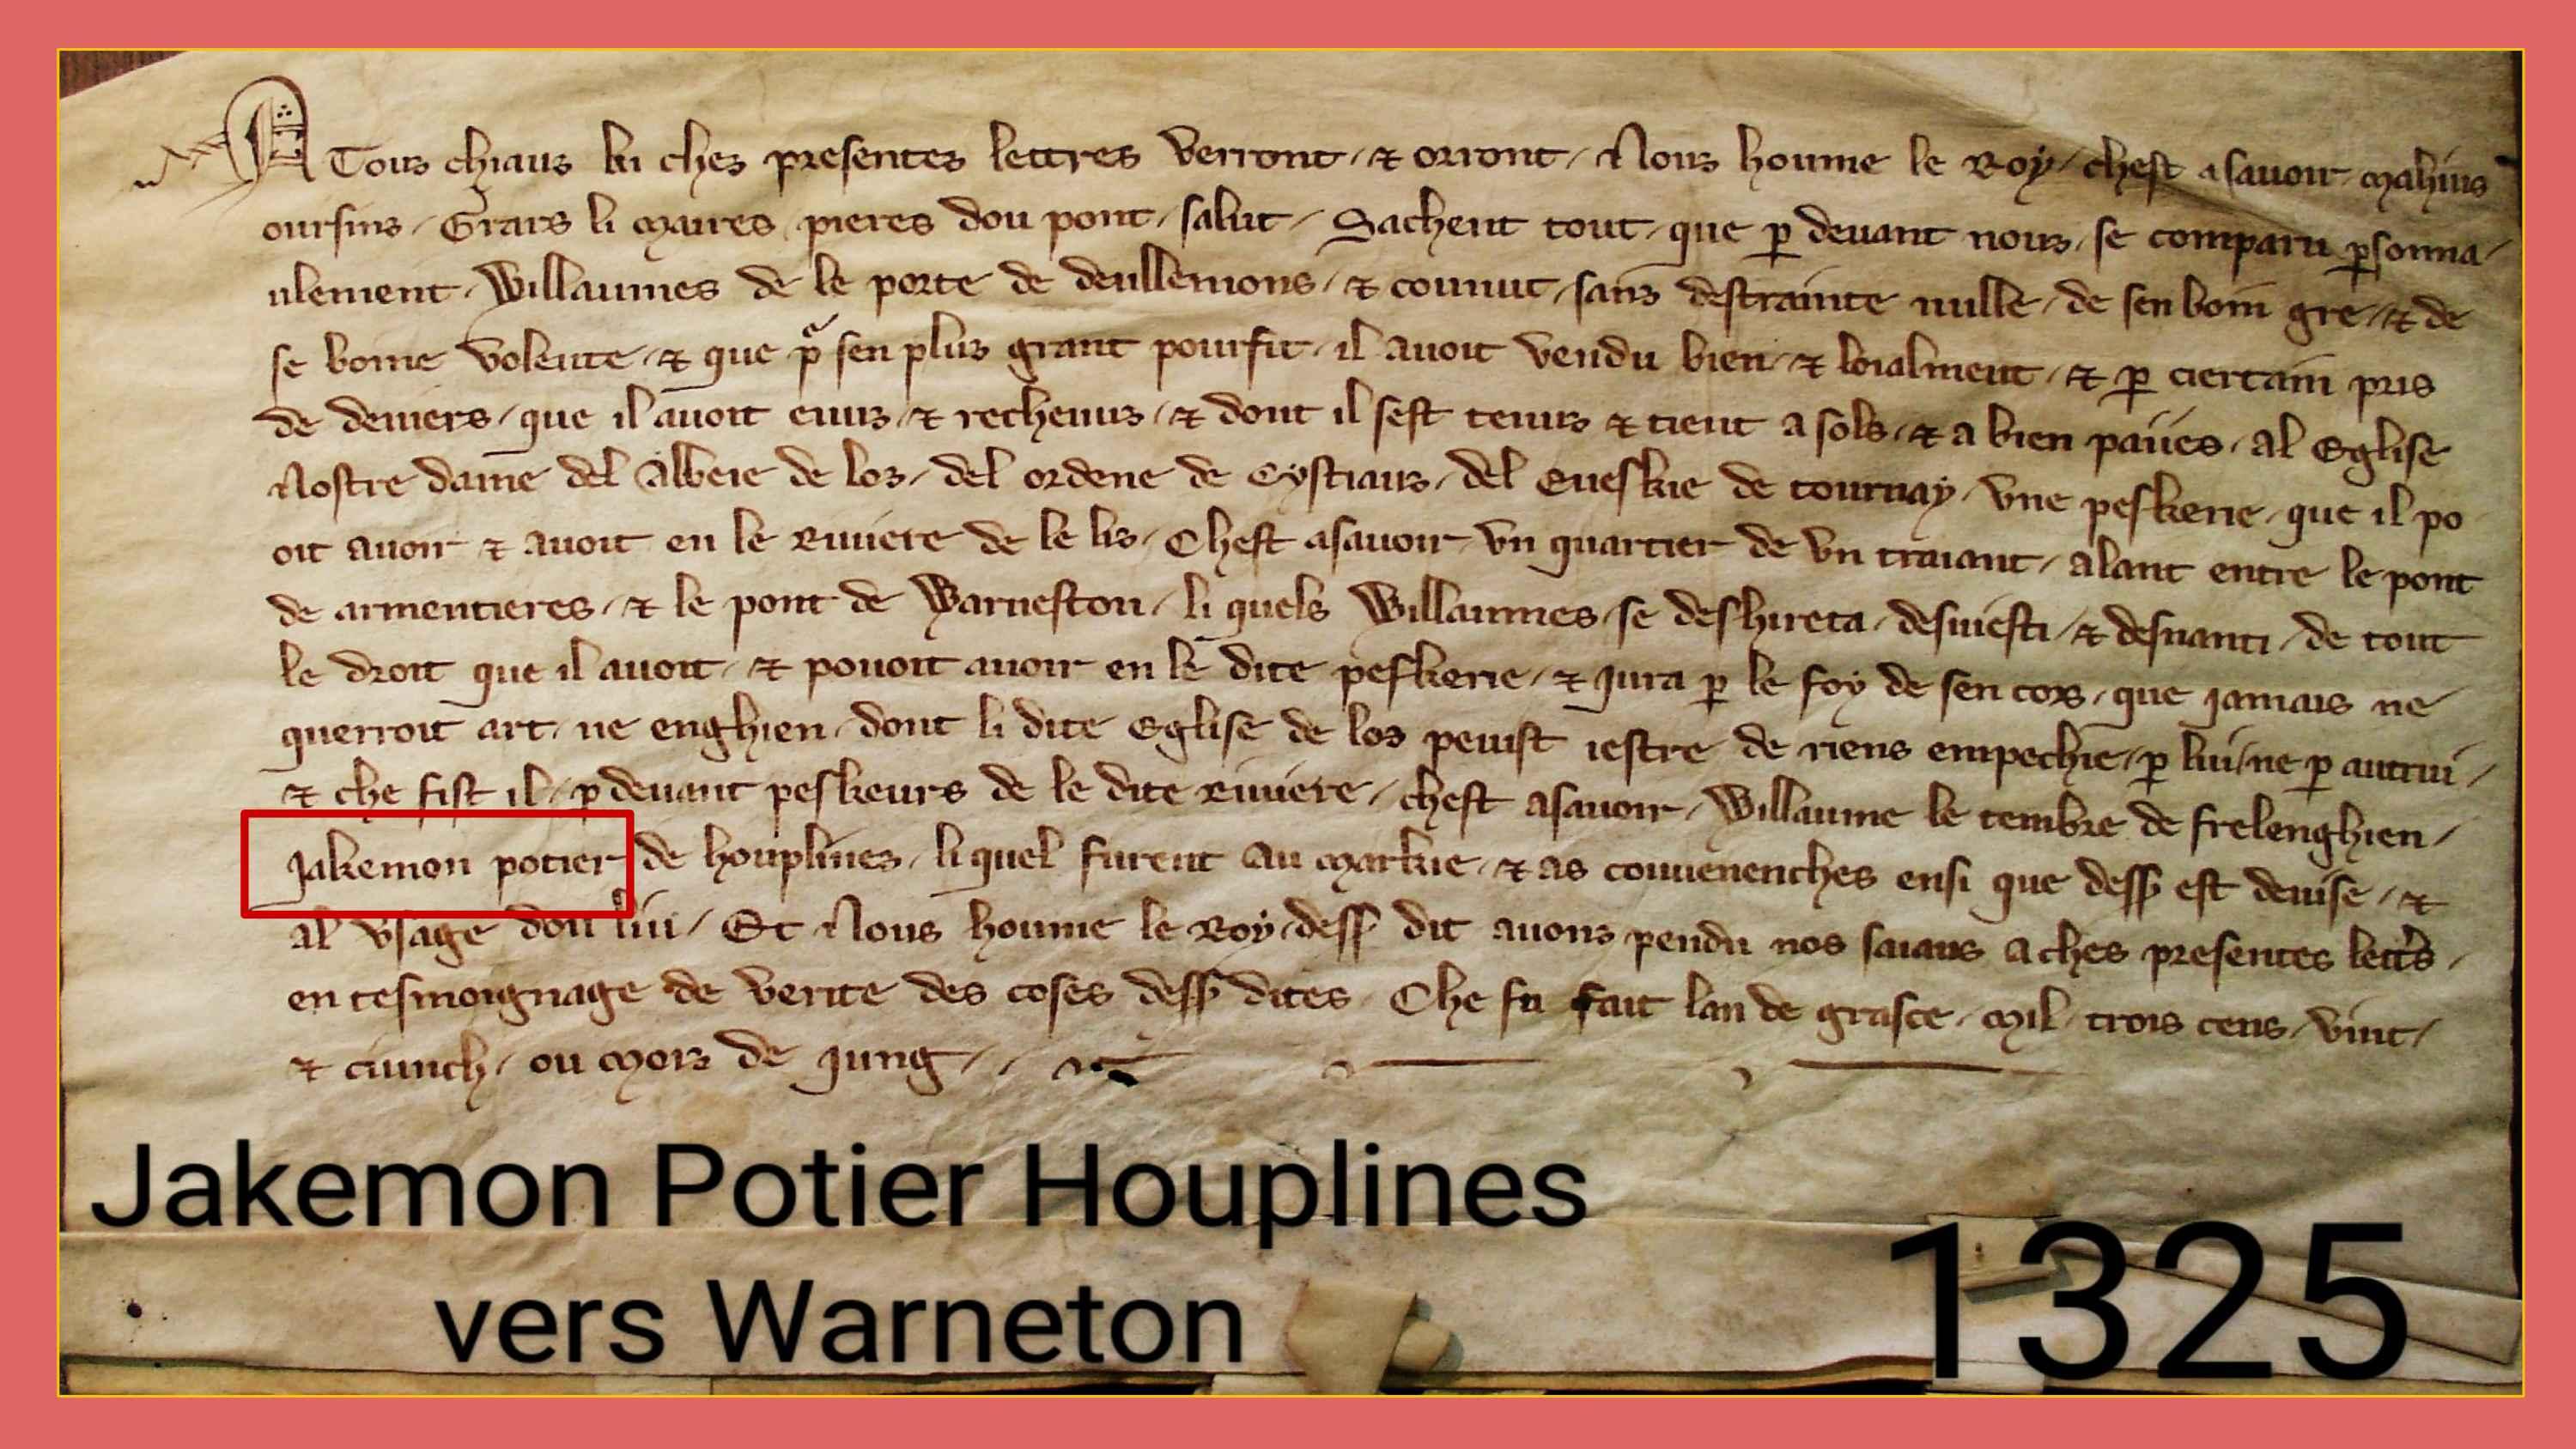 A Tous chiaus ki ches presentes lettres verront / & orront / Nous houme le Roy / chest asauoir mahius
oursins / Grars li maires / pieres dou pont / salut / Sachent tout / que p deuant nous / se comparu psonna /
ulement / Willaumes de le porte de deullemons / & connut / sans destrainte nulle / de sen boin gre / & de
se boine volente / & que pa sen plus grant pourfit / il auoit vendu bien / & loialment / & p ciertain pris
de deniers / que il auoit euus / & rechenus / & dont il sest tenus & tient a sols / & a bien paiies / al Eglise
Nostre dame del Abbeie de los / del ordene de Cystiaus / del Eueskie de tournay / vne peskerie / que il po
oit auoir & auoit en le Riuiere de le lis / Chest asauoir vn quartier de vn traiant / alant entre le pont
de armentieres / & le pont de Warneston / li quels Willaumes / se deshireta / desuiesti / & desuanti / de tout
le droit que il auoit / & pouoit auoir en le dite peskerie / & jura p le foy de sen cors / que jamais ne
querroit art / ne enghien / dont li dite Eglise de los peuist iestre de riens empechie / p lui / ne p autrui /
& che fist il / p deuant peskeurs de le dite Riuiere / chest asauoir / Willaume le tembre de frelenghien /
Jakemon potier de houplines / li quel furent au markie / & as conuenenches ensi que dess est deuise / &
al vsage dou liu / Et Nous houme le Roy dess dit auons pendu nos saiaus a ches presentes lettrs /
en tesmoignage de verite des coses dess dites / Che fu fait lan de grasce / mil / trois cens / vint /
& ciunch / ou mois de jung /
Jakemon Potier Houplines
vers Warneton
1325